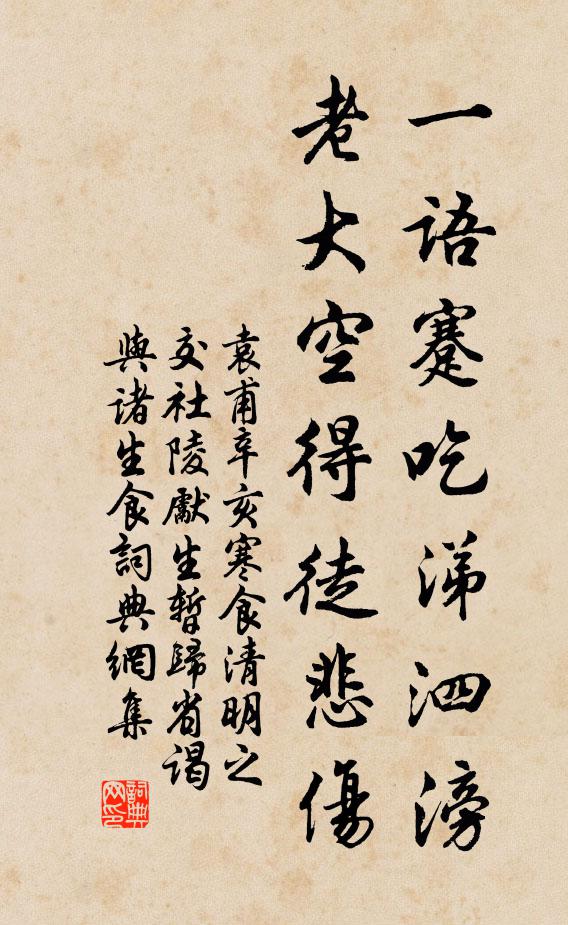 一語蹇吃涕泗滂
老大空得徒悲傷
袁甫辛亥寒食清明之
交社陵獻生暫歸省謁
與諸生食詞典網集
詞典網印